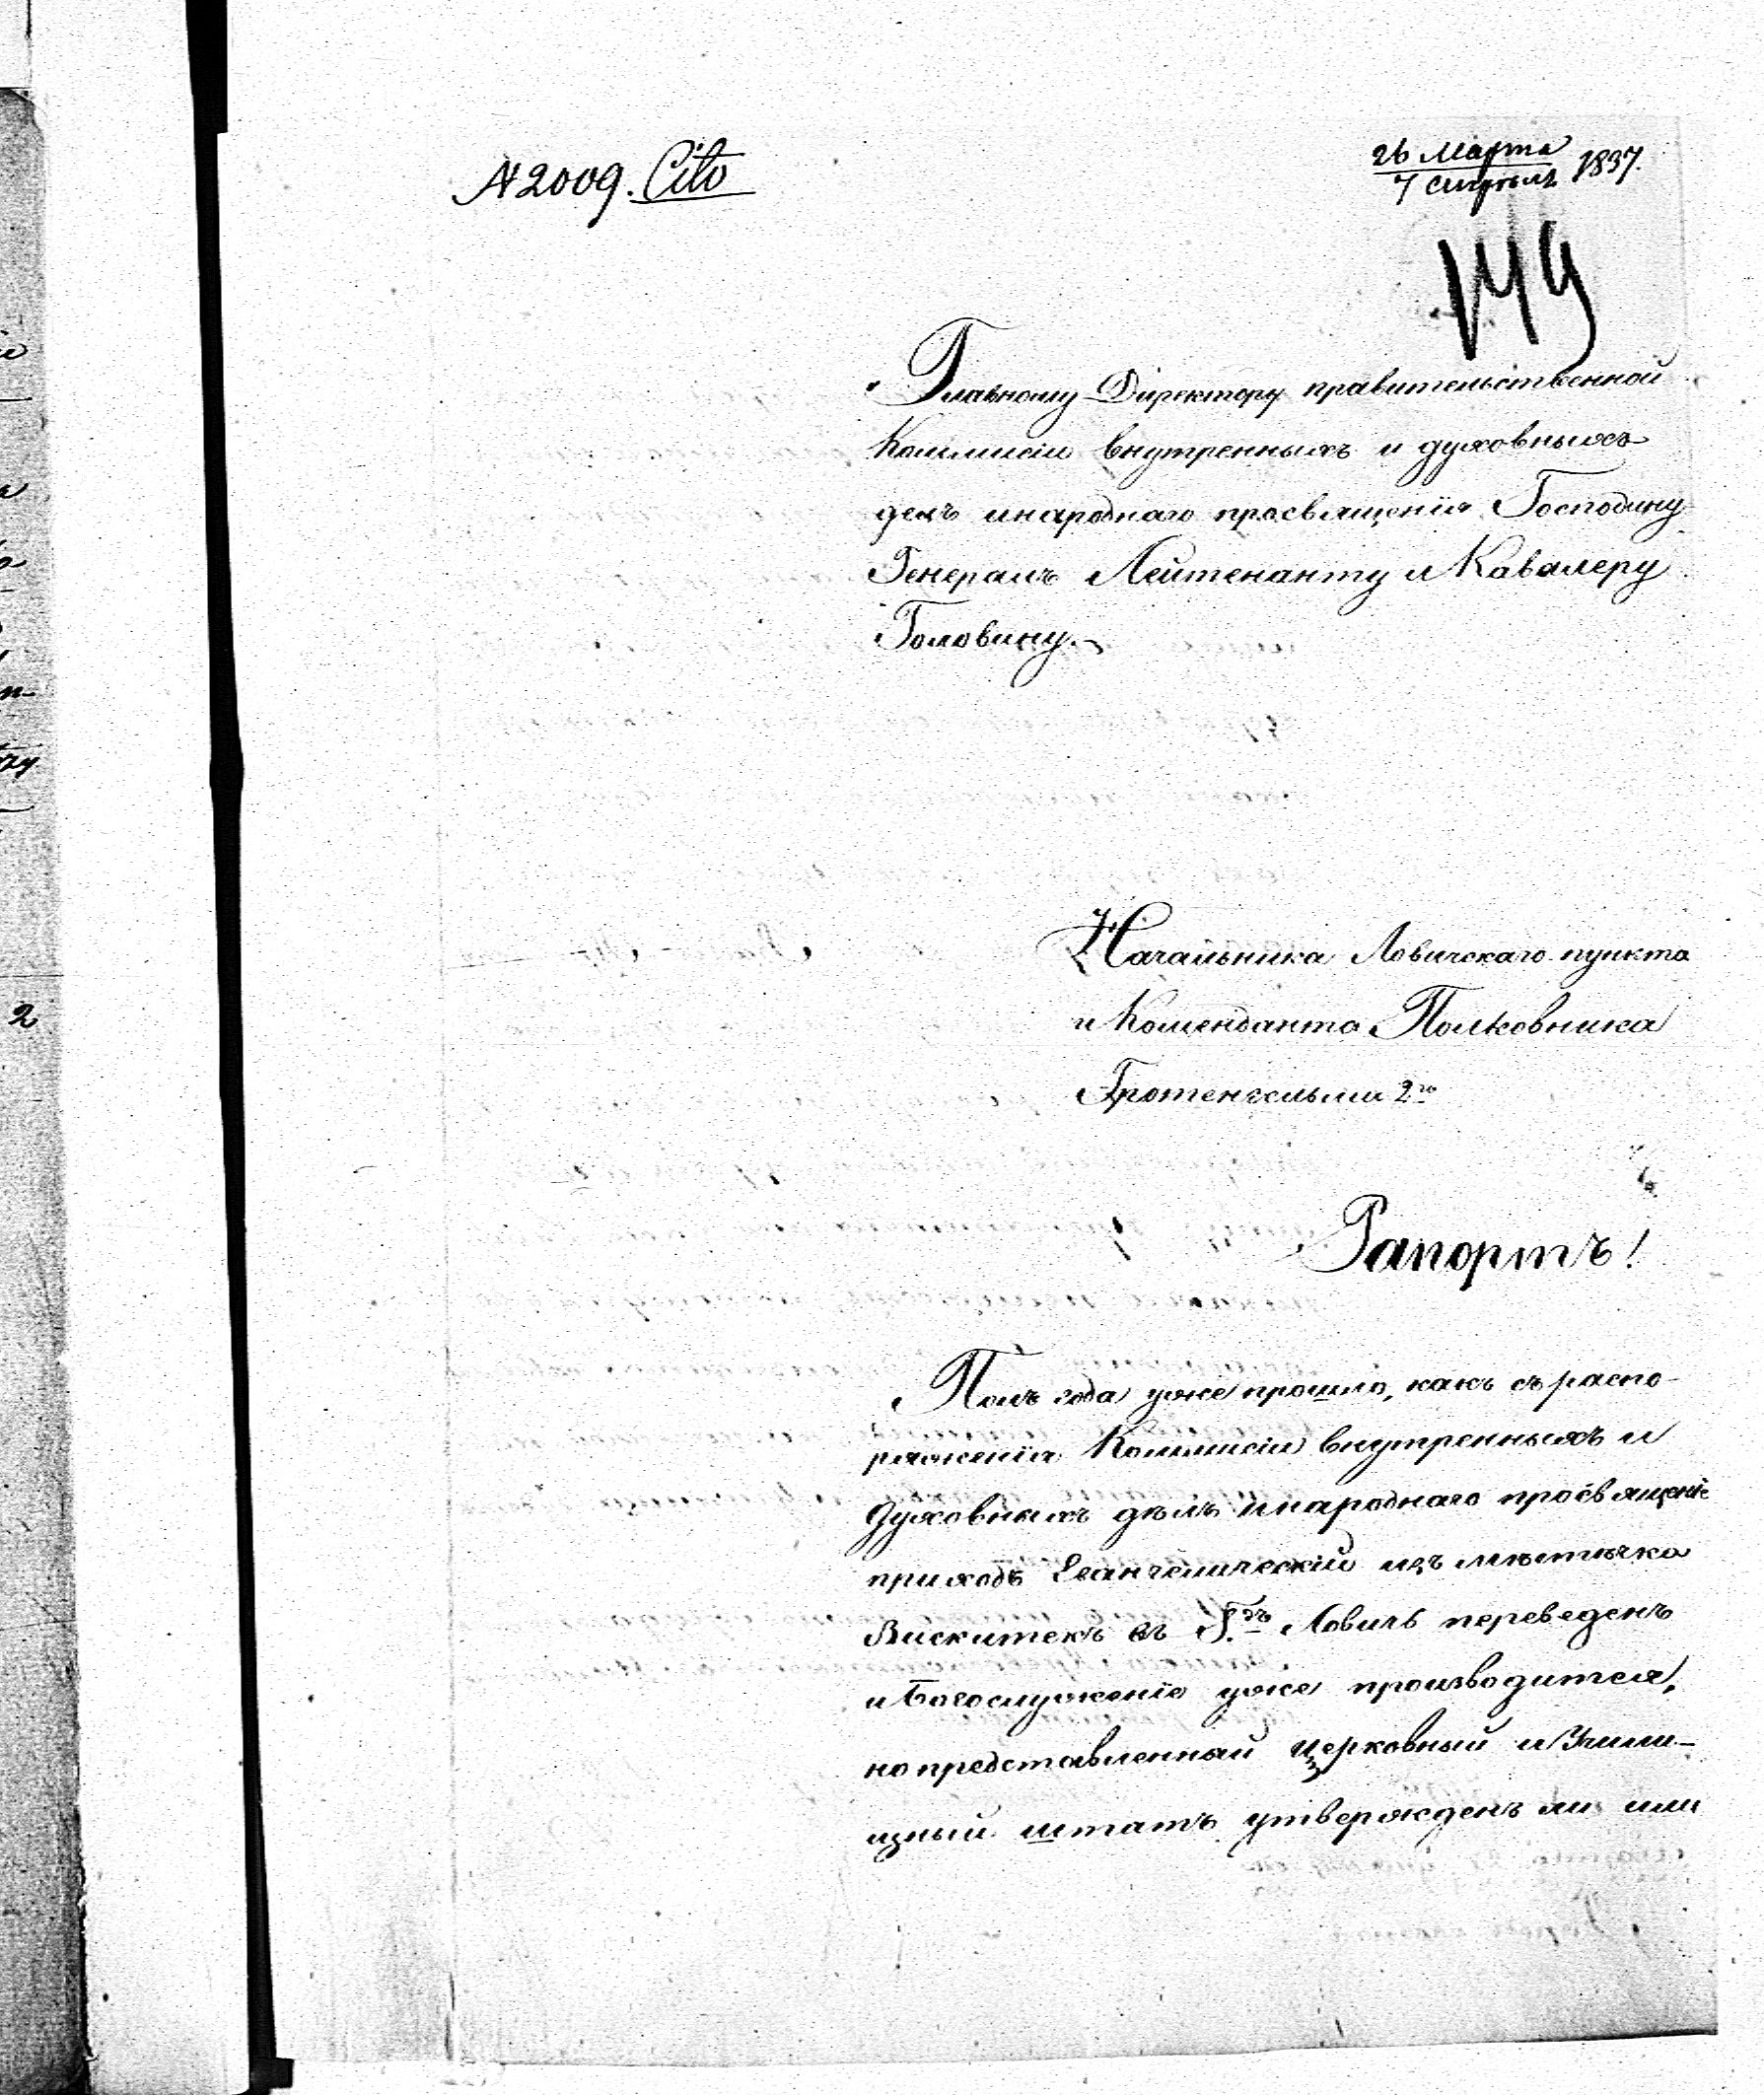 N 2009. Cito
26 Марта
7 Апрѣля 1837.
149
Главному Директору правительственной
Коммисіи внутренныхъ и духовныхъ
делъ инароднаго просвящения Господину
Генералъ Лейтенанту и Кавалеру
Головину.
Начальника Ловичскаго пункта
и Коменданта Полковника
Гротенгельма 2го
Рапортъ!
Полъ года уже прошло, какъ съ распо-
ряженія Коммисіи внутренныхъ и
Духовныхъ дѣлъ инароднаго просвященіе
приходъ Евангелическій изъ мѣстѣчка
Вискитекъ въ Г.дъ Ловичь переведенъ
и Богослуженіе уже производится,
но представленный церковный и Учили-
щный штатъ утвержденъ ли или
2